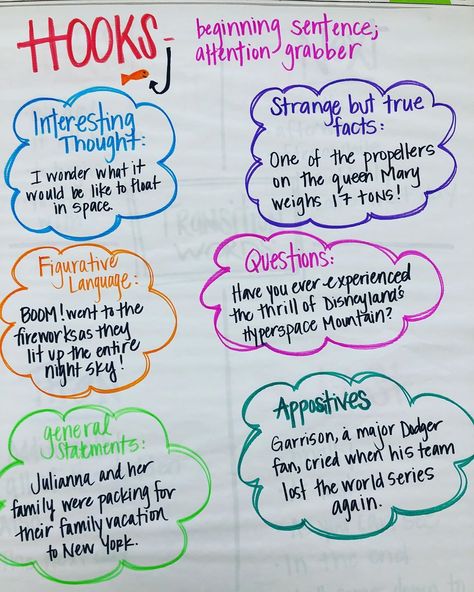 HOOKS-
beginning sentence;
attention grabber
Interesting
Thought:
I wonder what it
would be like to float
in space.
Strange but true
facts:
One of the propellers
on the queen Mary
weighs 17 tons!
Figurative
Language:
BOOM! went to the
fireworks as they
lit up the entire
night sky!
Questions:
Have you ever experienced
the thrill of Disneyland's
Hyperspace Mountain?
general
Statements:
Julianna and her
family were packing for
their family vacation
to New York.
Appositives
Garrison, a major Dodger
fan, cried when his team
lost the world series
again.